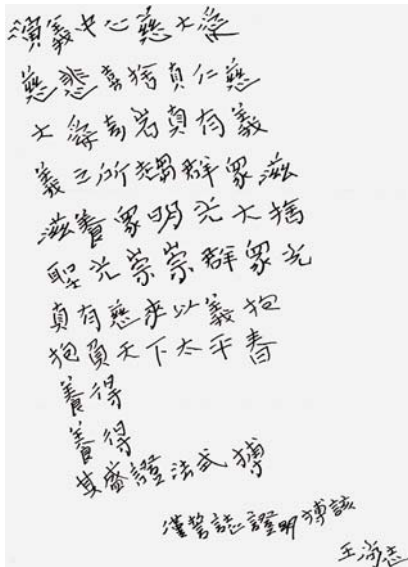 演義中心慈大愛
慈悲喜捨真仁慈
大愛喜岩真有義
義之所趨群眾滋
滋養眾明光大捨
聖光崇崇群眾光
真有慈來以義抱
抱負天下太平春
養得
養得
其盛證法式搏
誌證明搏該
王